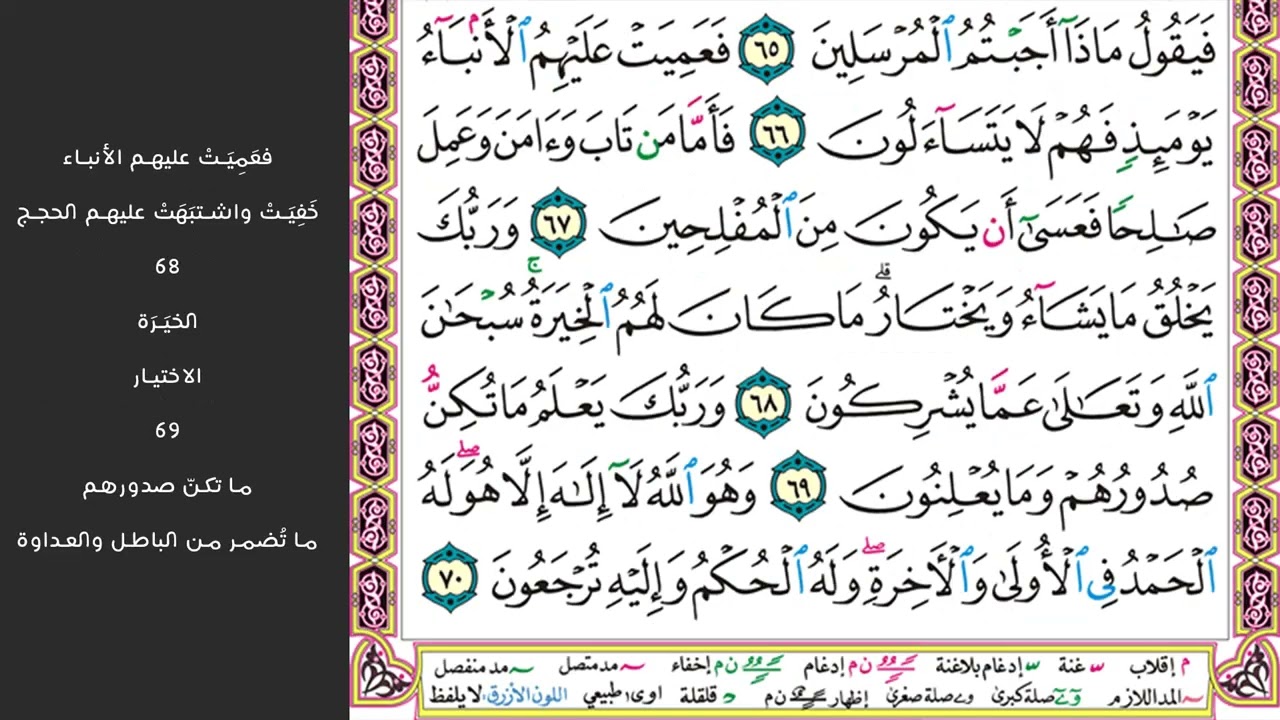 فَيَقُولُ مَاذَآ أَجَبْتُمُ ٱلْمُرْسَلِينَ ٦٥ فَعَمِيَتْ عَلَيْهِمُ ٱلْأَنۢبَآءُ
يَوْمَئِذٍ فَهُمْ لَا يَتَسَآءَلُونَ ٦٦ فَأَمَّا مَن تَابَ وَءَامَنَ وَعَمِلَ
صَٰلِحًا فَعَسَىٰٓ أَن يَكُونَ مِنَ ٱلْمُفْلِحِينَ ٦٧ وَرَبُّكَ
يَخْلُقُ مَا يَشَآءُ وَيَخْتَارُ ۗ مَا كَانَ لَهُمُ ٱلْخِيَرَةُ ۚ سُبْحَٰنَ
ٱللَّهِ وَتَعَٰلَىٰ عَمَّا يُشْرِكُونَ ٦٨ وَرَبُّكَ يَعْلَمُ مَا تُكِنُّ
صُدُورُهُمْ وَمَا يُعْلِنُونَ ٦٩ وَهُوَ ٱللَّهُ لَآ إِلَٰهَ إِلَّا هُوَ ۖ لَهُ
ٱلْحَمْدُ فِى ٱلْأُولَىٰ وَٱلْأَخِرَةِ ۖ وَلَهُ ٱلْحُكْمُ وَإِلَيْهِ تُرْجَعُونَ ٧٠
م إقلاب س غنة س إدغام بلا غنة ن م إدغام ن م إخفاء مد متصل مد منفصل
المد اللازم صلة كبرى صلة صغرى إظهار ن م قلقلة اوى طبيعي اللون الأزرق لا يلفظ
فعَمِيَتْ عليهم الأنباء
خَفِيَتْ واشتبَهَتْ عليهم الحجج
68
الخيَرَة
الاختيار
69
ما تكنّ صدورهم
ما تُضمر من الباطل والعداوة